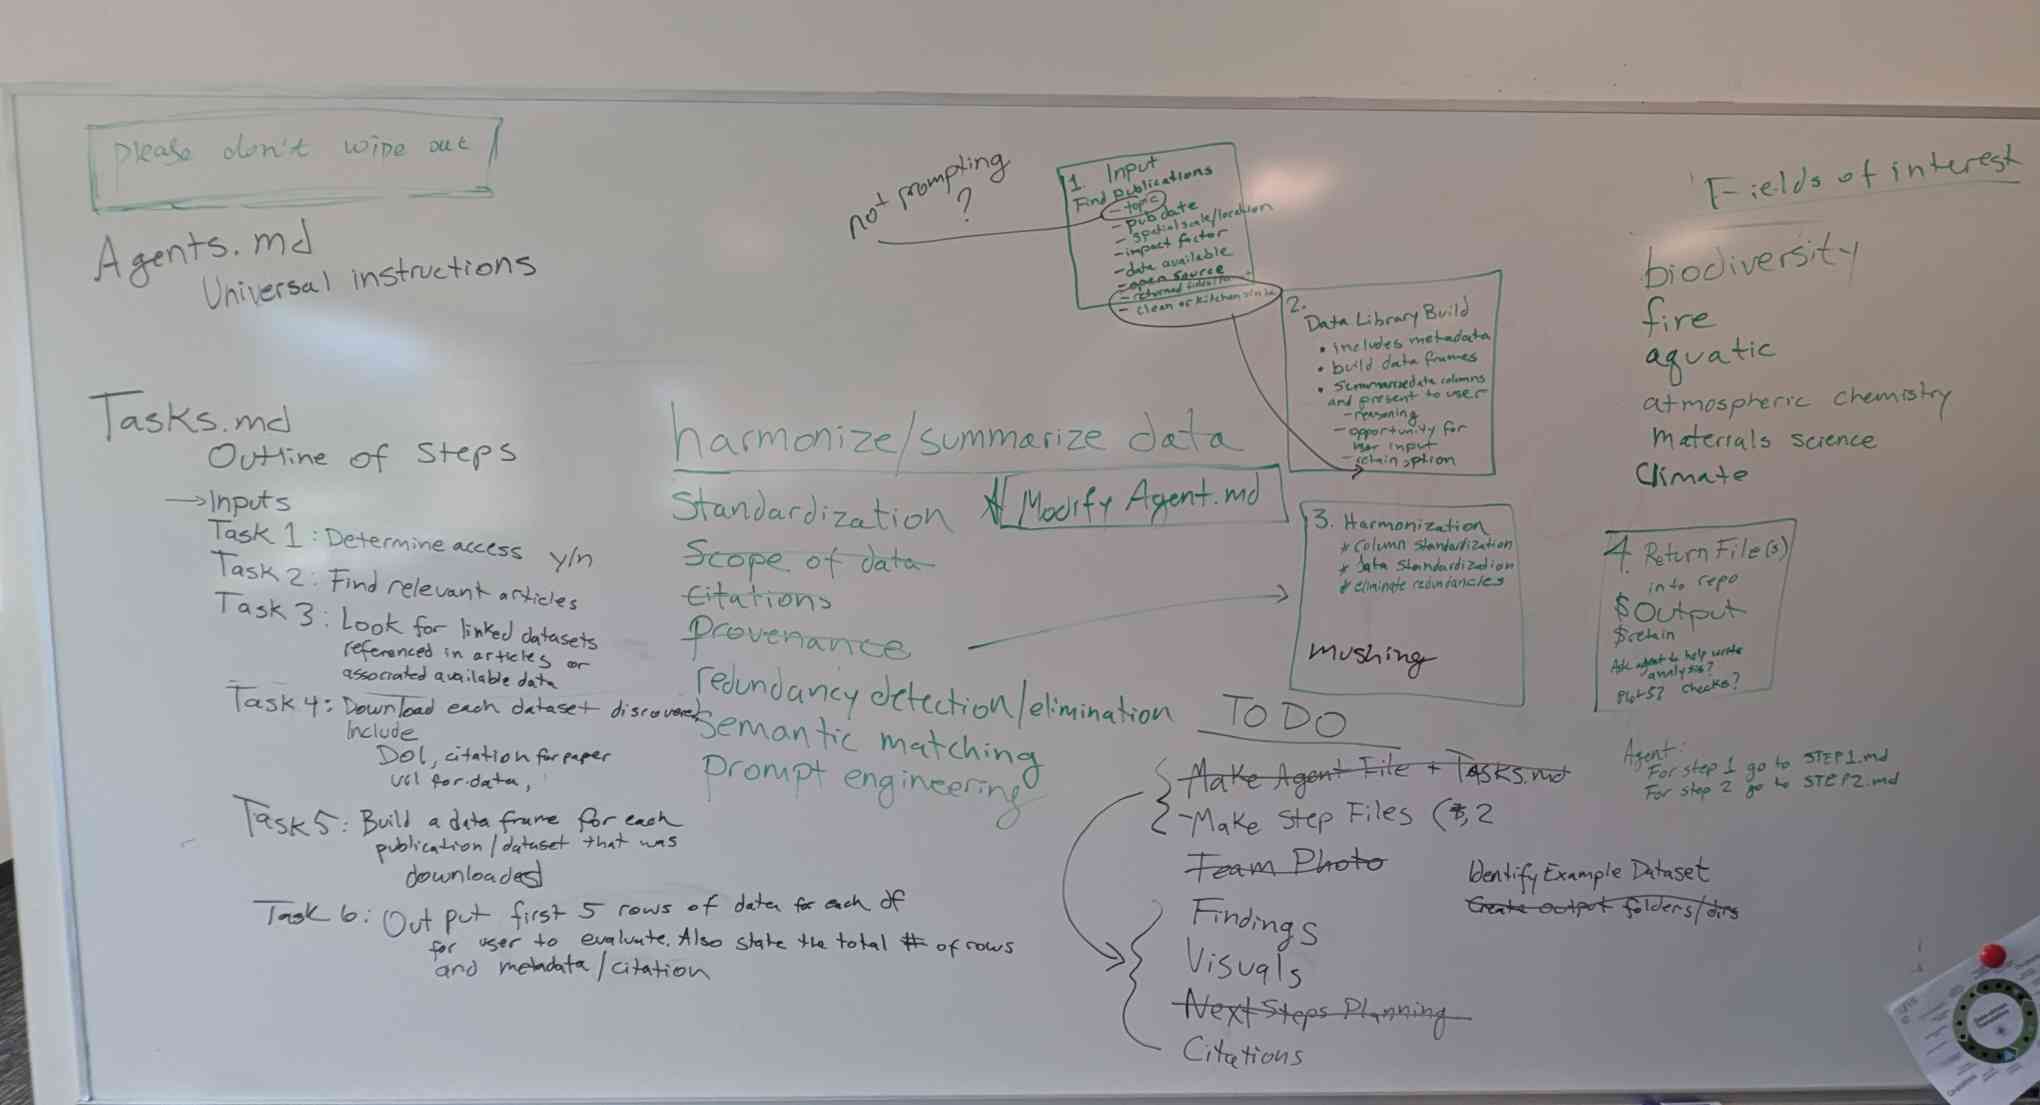 please don't wipe out
Agents.md
Universal instructions
Tasks.md
Outline of Steps
→ Inputs
Task 1: Determine access y/n
Task 2: Find relevant articles
Task 3: Look for linked datasets
referenced in articles or
associated available data
Task 4: Download each dataset discovered
Include
DOI, citation for paper
url for data,
Task 5: Build a data frame for each
publication/dataset that was
downloaded
Task 6: Output first 5 rows of data for each df
for user to evaluate. Also state the total # of rows
and metadata/citation
harmonize/summarize data
Standardization
Modify Agent.md
Scope of data
Citations
Provenance
redundancy detection/elimination
Semantic matching
Prompt engineering
not prompting
?
1. Input
Find publications
- topic
- pub date
- spatial scale/location
- impact factor
- data available
- open source
- returned
- clean or kitchen
2.
Data Library Build
• includes metadata
• build data frames
• Summarize data columns
and present to user
- reasoning
- opportunity for
user input
- retain option
3. Harmonization
* Column standardization
* data standardization
* eliminate redundancies
mushing
Fields of interest
biodiversity
fire
aquatic
atmospheric chemistry
materials science
Climate
4. Return File(s)
into repo
$ Output
$ retain
Ask agent to help write
analysis?
Plots? Checks?
Agent:
For step 1 go to STEP1.md
For step 2 go to STEP2.md
TO DO
Make Agent File + Tasks.md
- Make Step Files (1, 2
Team Photo
Findings
Visuals
Next Steps Planning
Citations
Identify Example Dataset
Create output folders/dirs